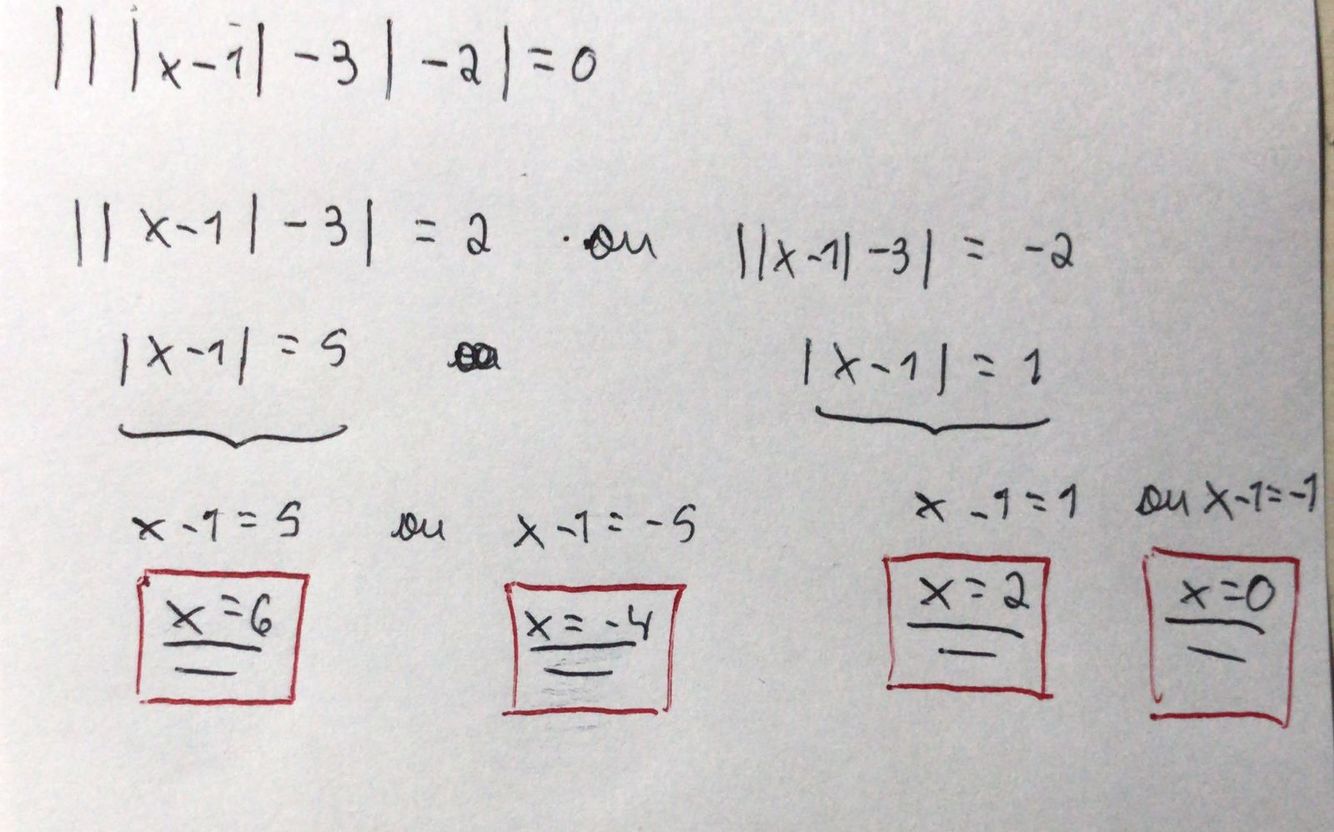 |||x-1|-3|-2|=0
||x-1|-3| = 2 ou ||x-1|-3| = -2
|x-1| = 5 |x-1| = 1
x-1=5 ou x-1=-5 x-1=1 ou x-1=-1
x=6 x=-4 x=2 x=0